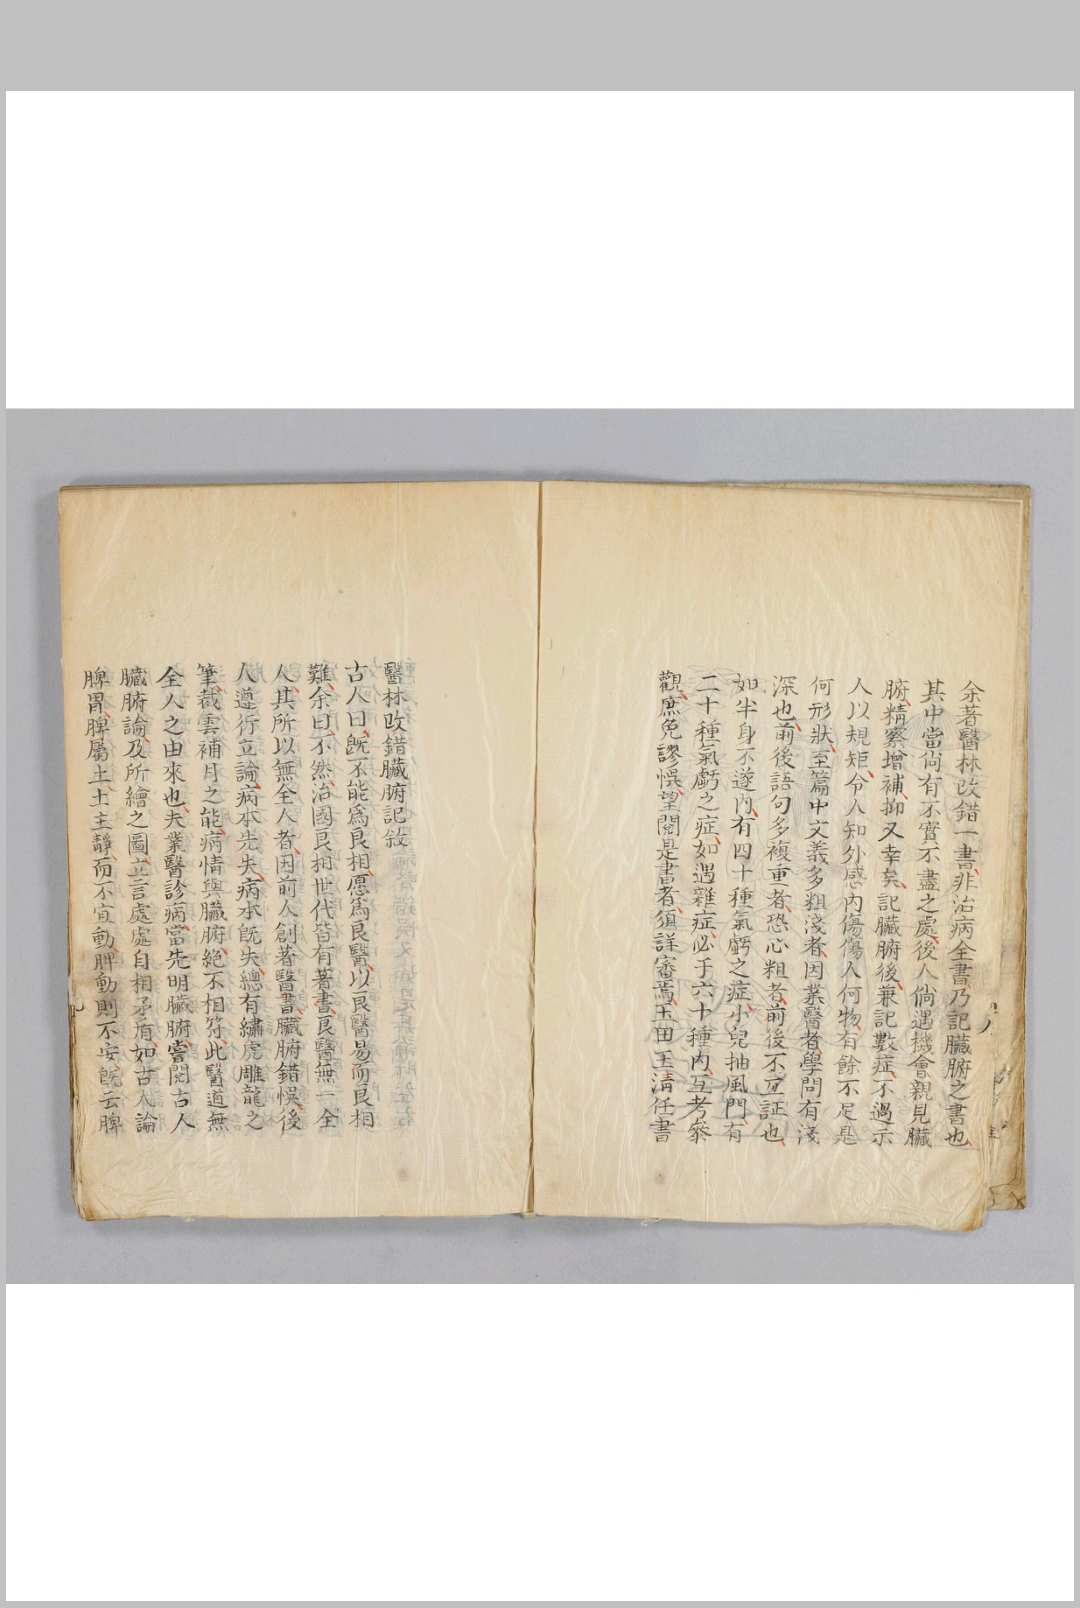 余著醫林改錯一書非治病全書乃記臟腑之書也
其中當尚有不實不盡之處後人倘遇機會親見臟
腑精察增補抑又幸矣記臟腑後兼記數症不過示
人以規矩令人知外感內傷傷人何物有餘不足是
何形狀至篇中文義多粗淺者因業醫者學問有淺
深也前後語句多複重者恐心粗者前後不互証也
如半身不遂內有四十種氣虧之症小兒抽風門有
二十種氣虧之症如遇雜症必于六十種內互考參
觀庶免謬悞望閱是書者須詳審焉玉田王清任書
醫林改錯臟腑記敍
古人曰既不能爲良相愿爲良醫以良醫易而良相
難余曰不然治國良相世代皆有著書良醫無一全
人其所以無全人者因前人創著醫書臟腑錯悞後
人遵行立論病本先失病本既失總有繡虎雕龍之
筆裁雲補月之能病情與臟腑絕不相符此醫道無
全人之由來也夫業醫診病當先明臟腑嘗閱古人
臟腑論及所繪之圖立言處處自相矛盾如古人論
脾胃脾屬土土主靜而不宜動脾動則不安既云脾